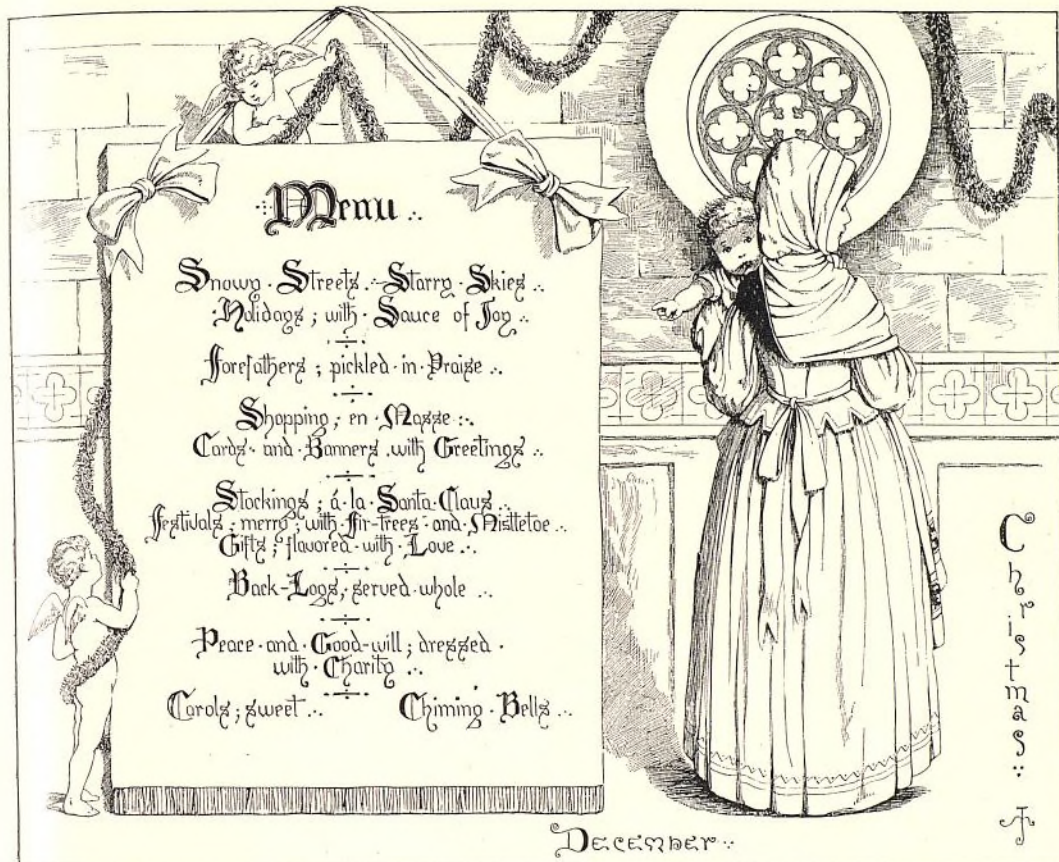 Menu
Snowy Streets Starry Skies
Holidays; with Sauce of Joy
Forefathers; pickled in Praise
Shopping; en Masse
Cards and Banners with Greetings
Stockings; á la Santa Claus
Festivals; merry; with Fir-trees and Mistletoe
Gifts; flavored with Love
Back-Logs; served whole
Peace and Good-will; dressed
with Charity
Carols; sweet Chiming Bells
Christmas
December